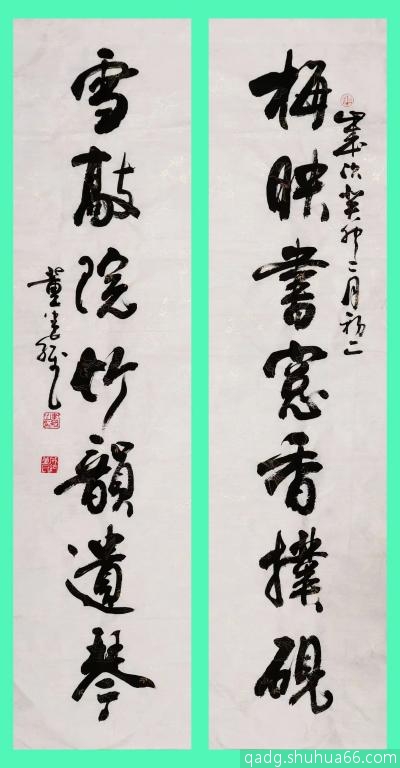 梅映書窓香撲硯
歲次癸卯二月初二
雪敲院竹韻遺琴
董
qadg.shuhua66.com